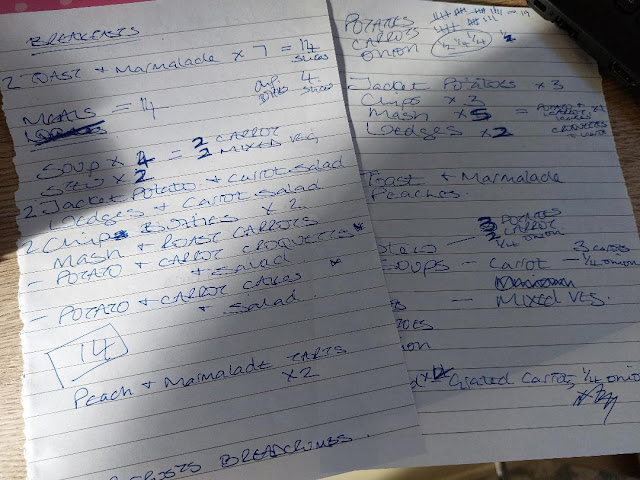 BREAKFASTS
2 TOAST + Marmalade x 7 = 14 slices
4 slices
MEALS = 14
SOUP x 4 = 2 CARROT
2 MIXED VEG
STEW x 2
2 Jacket Potato + Carrot Salad
Wedges + Carrot Salad
2 Chips Butties x 2
Mash + ROAST CARROTS
- POTATO + CARROT CROQUETTES
+ salad
- POTATO + CARROT CAKES
+ salad
14
Peach + Marmalade TARTS
x 2
BREADCRUMBS.
POTATOES
CARROTS
ONION 1/4 1/4 1/4 1/2
Jacket Potatoes x 3
Chips x 3
Mash x 5
Wedges x 2
CROQUETTES
Toast + Marmalade
Peaches.
Stew - 3 POTATO
3 CARROT
1/4 ONION
SOUPS - Carrot - 3 carrots
1/4 onion
- MIXED VEG.
Grated Carrots, 1/4 onion